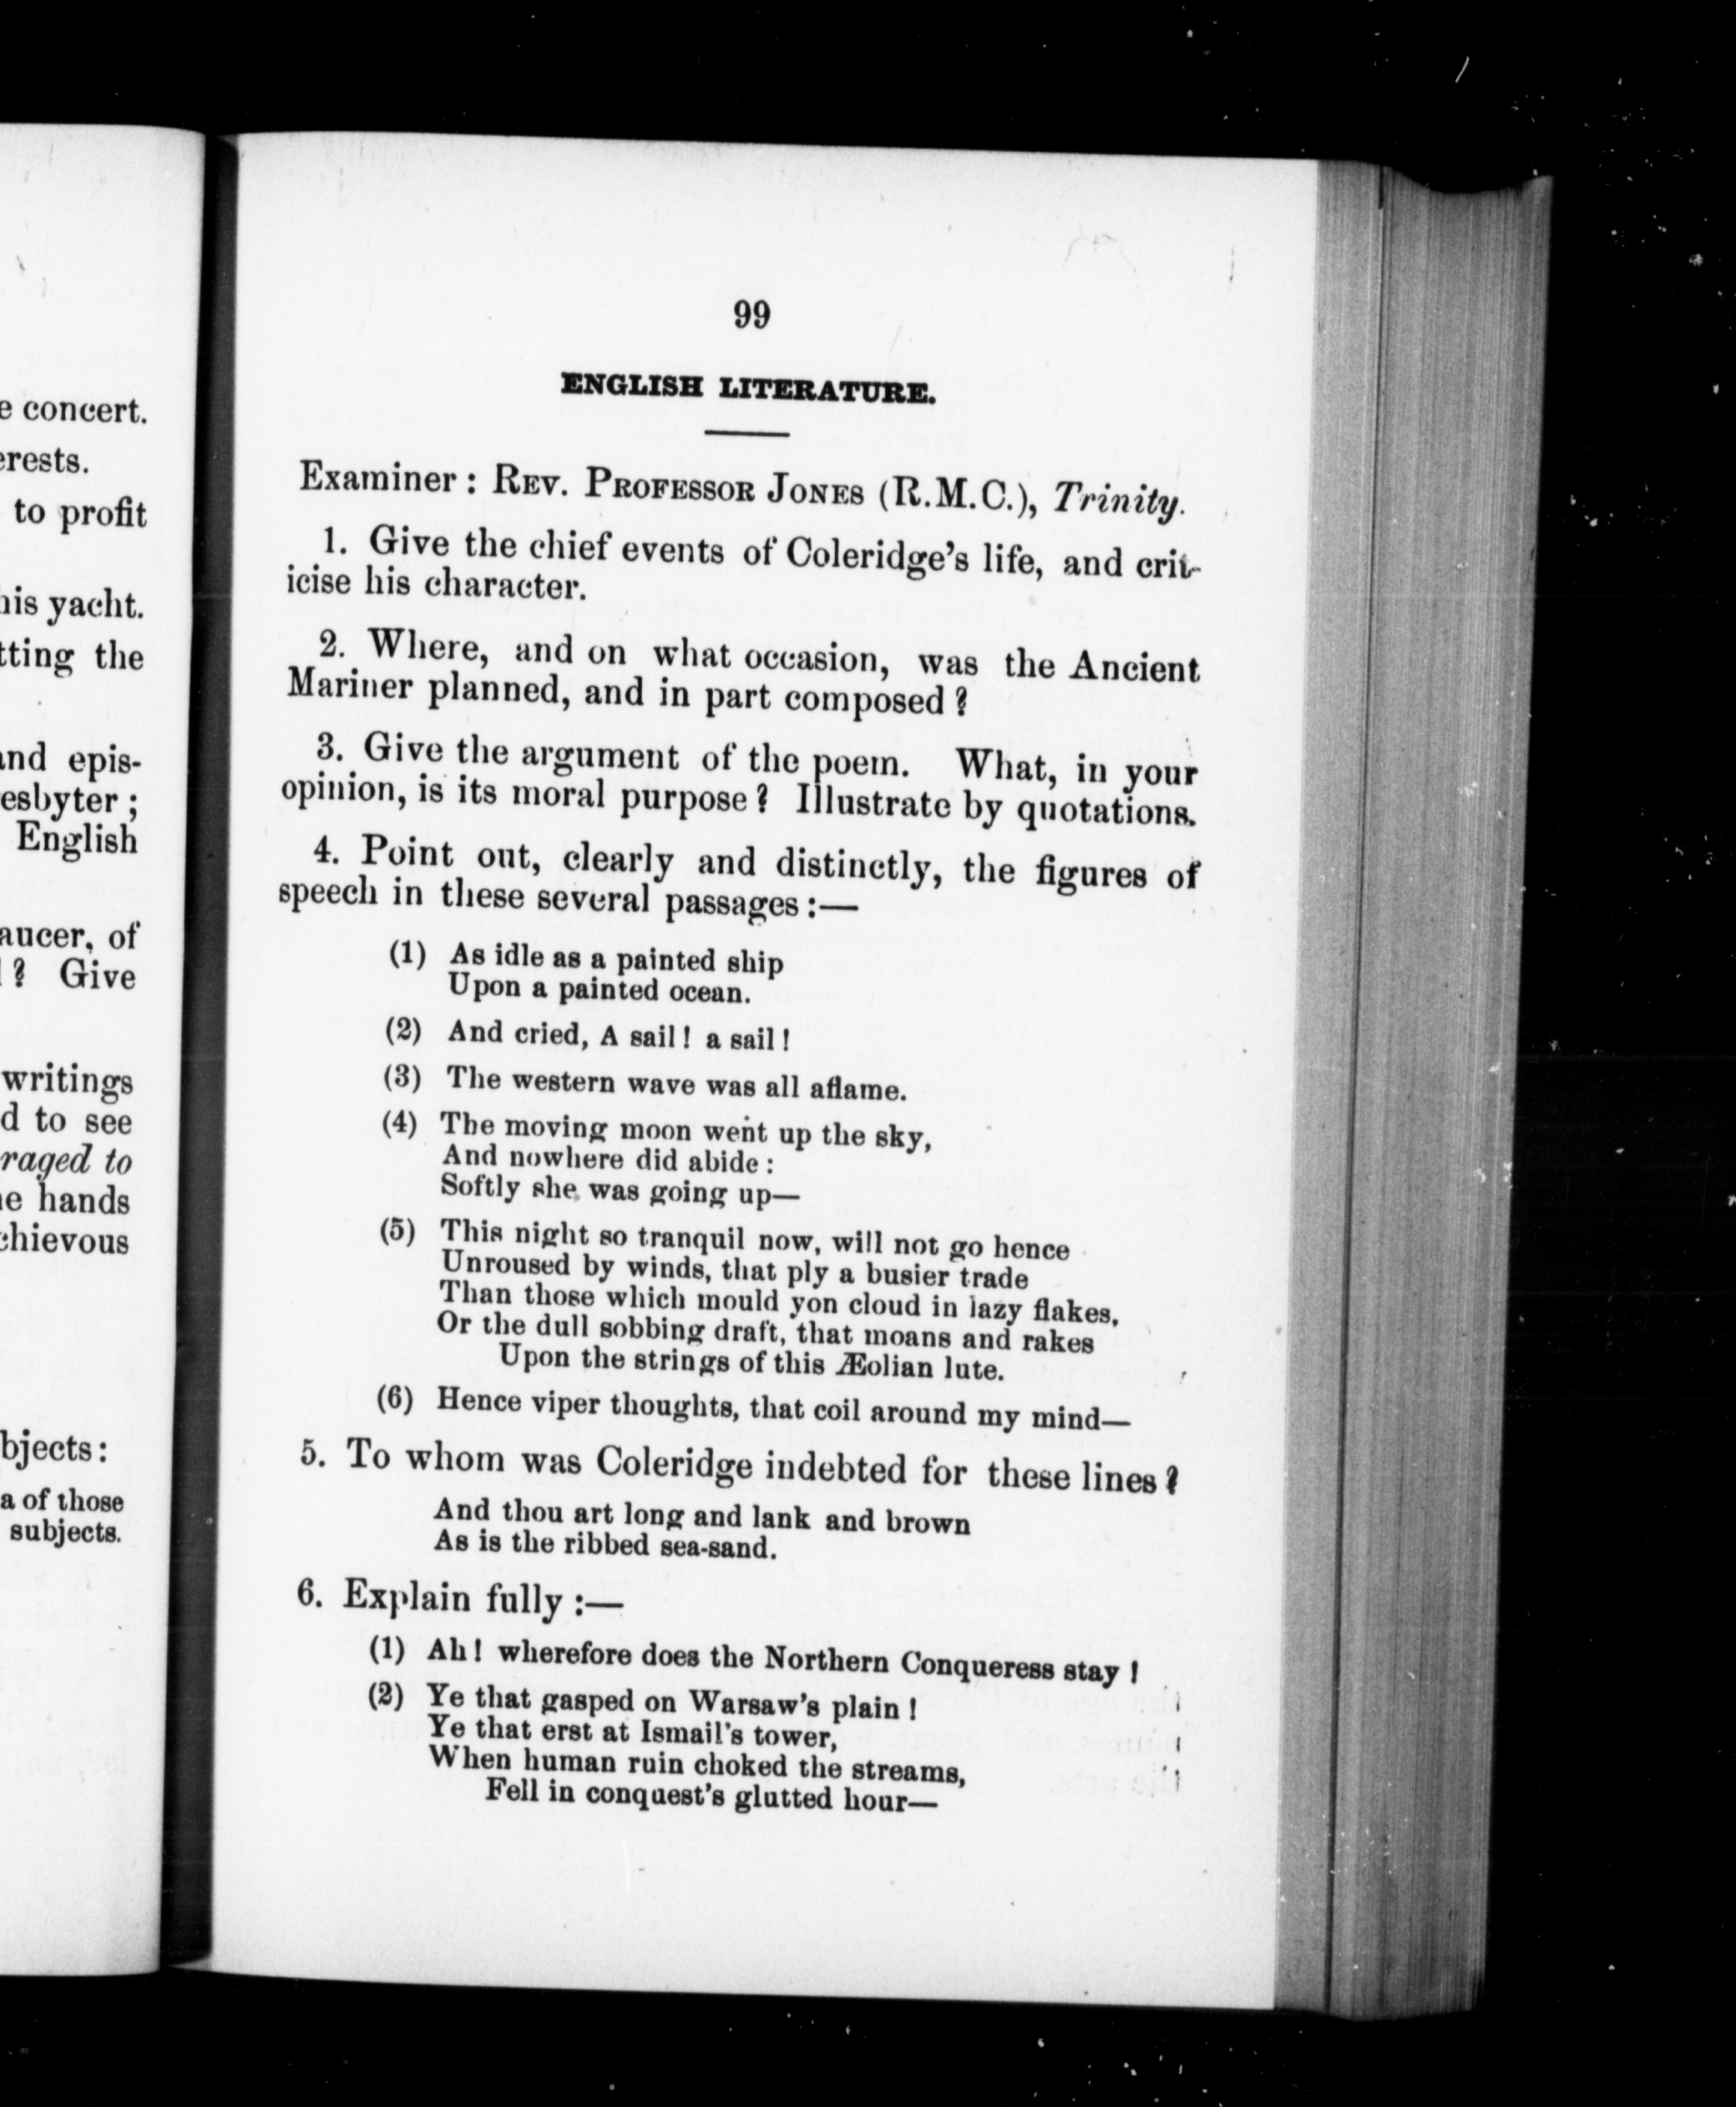 e concert.
erests.
to profit
his yacht.
tting the
and epis-
esbyter ;
English
aucer, of
? Give
writings
d to see
raged to
e hands
chievous
bjects :
a of those
subjects.
99
ENGLISH LITERATURE.
Examiner : REV. PROFESSOR JONES (R.M.C.), Trinity.
1. Give the chief events of Coleridge's life, and crit-
icise his character.
2. Where, and on what occasion, was the Ancient
Mariner planned, and in part composed ?
3. Give the argument of the poem. What, in your
opinion, is its moral purpose ? Illustrate by quotations.
4. Point out, clearly and distinctly, the figures of
speech in these several passages :—
(1) As idle as a painted ship
Upon a painted ocean.
(2) And cried, A sail ! a sail !
(3) The western wave was all aflame.
(4) The moving moon went up the sky,
And nowhere did abide :
Softly she was going up—
(5) This night so tranquil now, will not go hence
Unroused by winds, that ply a busier trade
Than those which mould yon cloud in lazy flakes,
Or the dull sobbing draft, that moans and rakes
Upon the strings of this Æolian lute.
(6) Hence viper thoughts, that coil around my mind—
5. To whom was Coleridge indebted for these lines ?
And thou art long and lank and brown
As is the ribbed sea-sand.
6. Explain fully :—
(1) Ah ! wherefore does the Northern Conqueress stay !
(2) Ye that gasped on Warsaw's plain !
Ye that erst at Ismail's tower,
When human ruin choked the streams,
Fell in conquest's glutted hour—